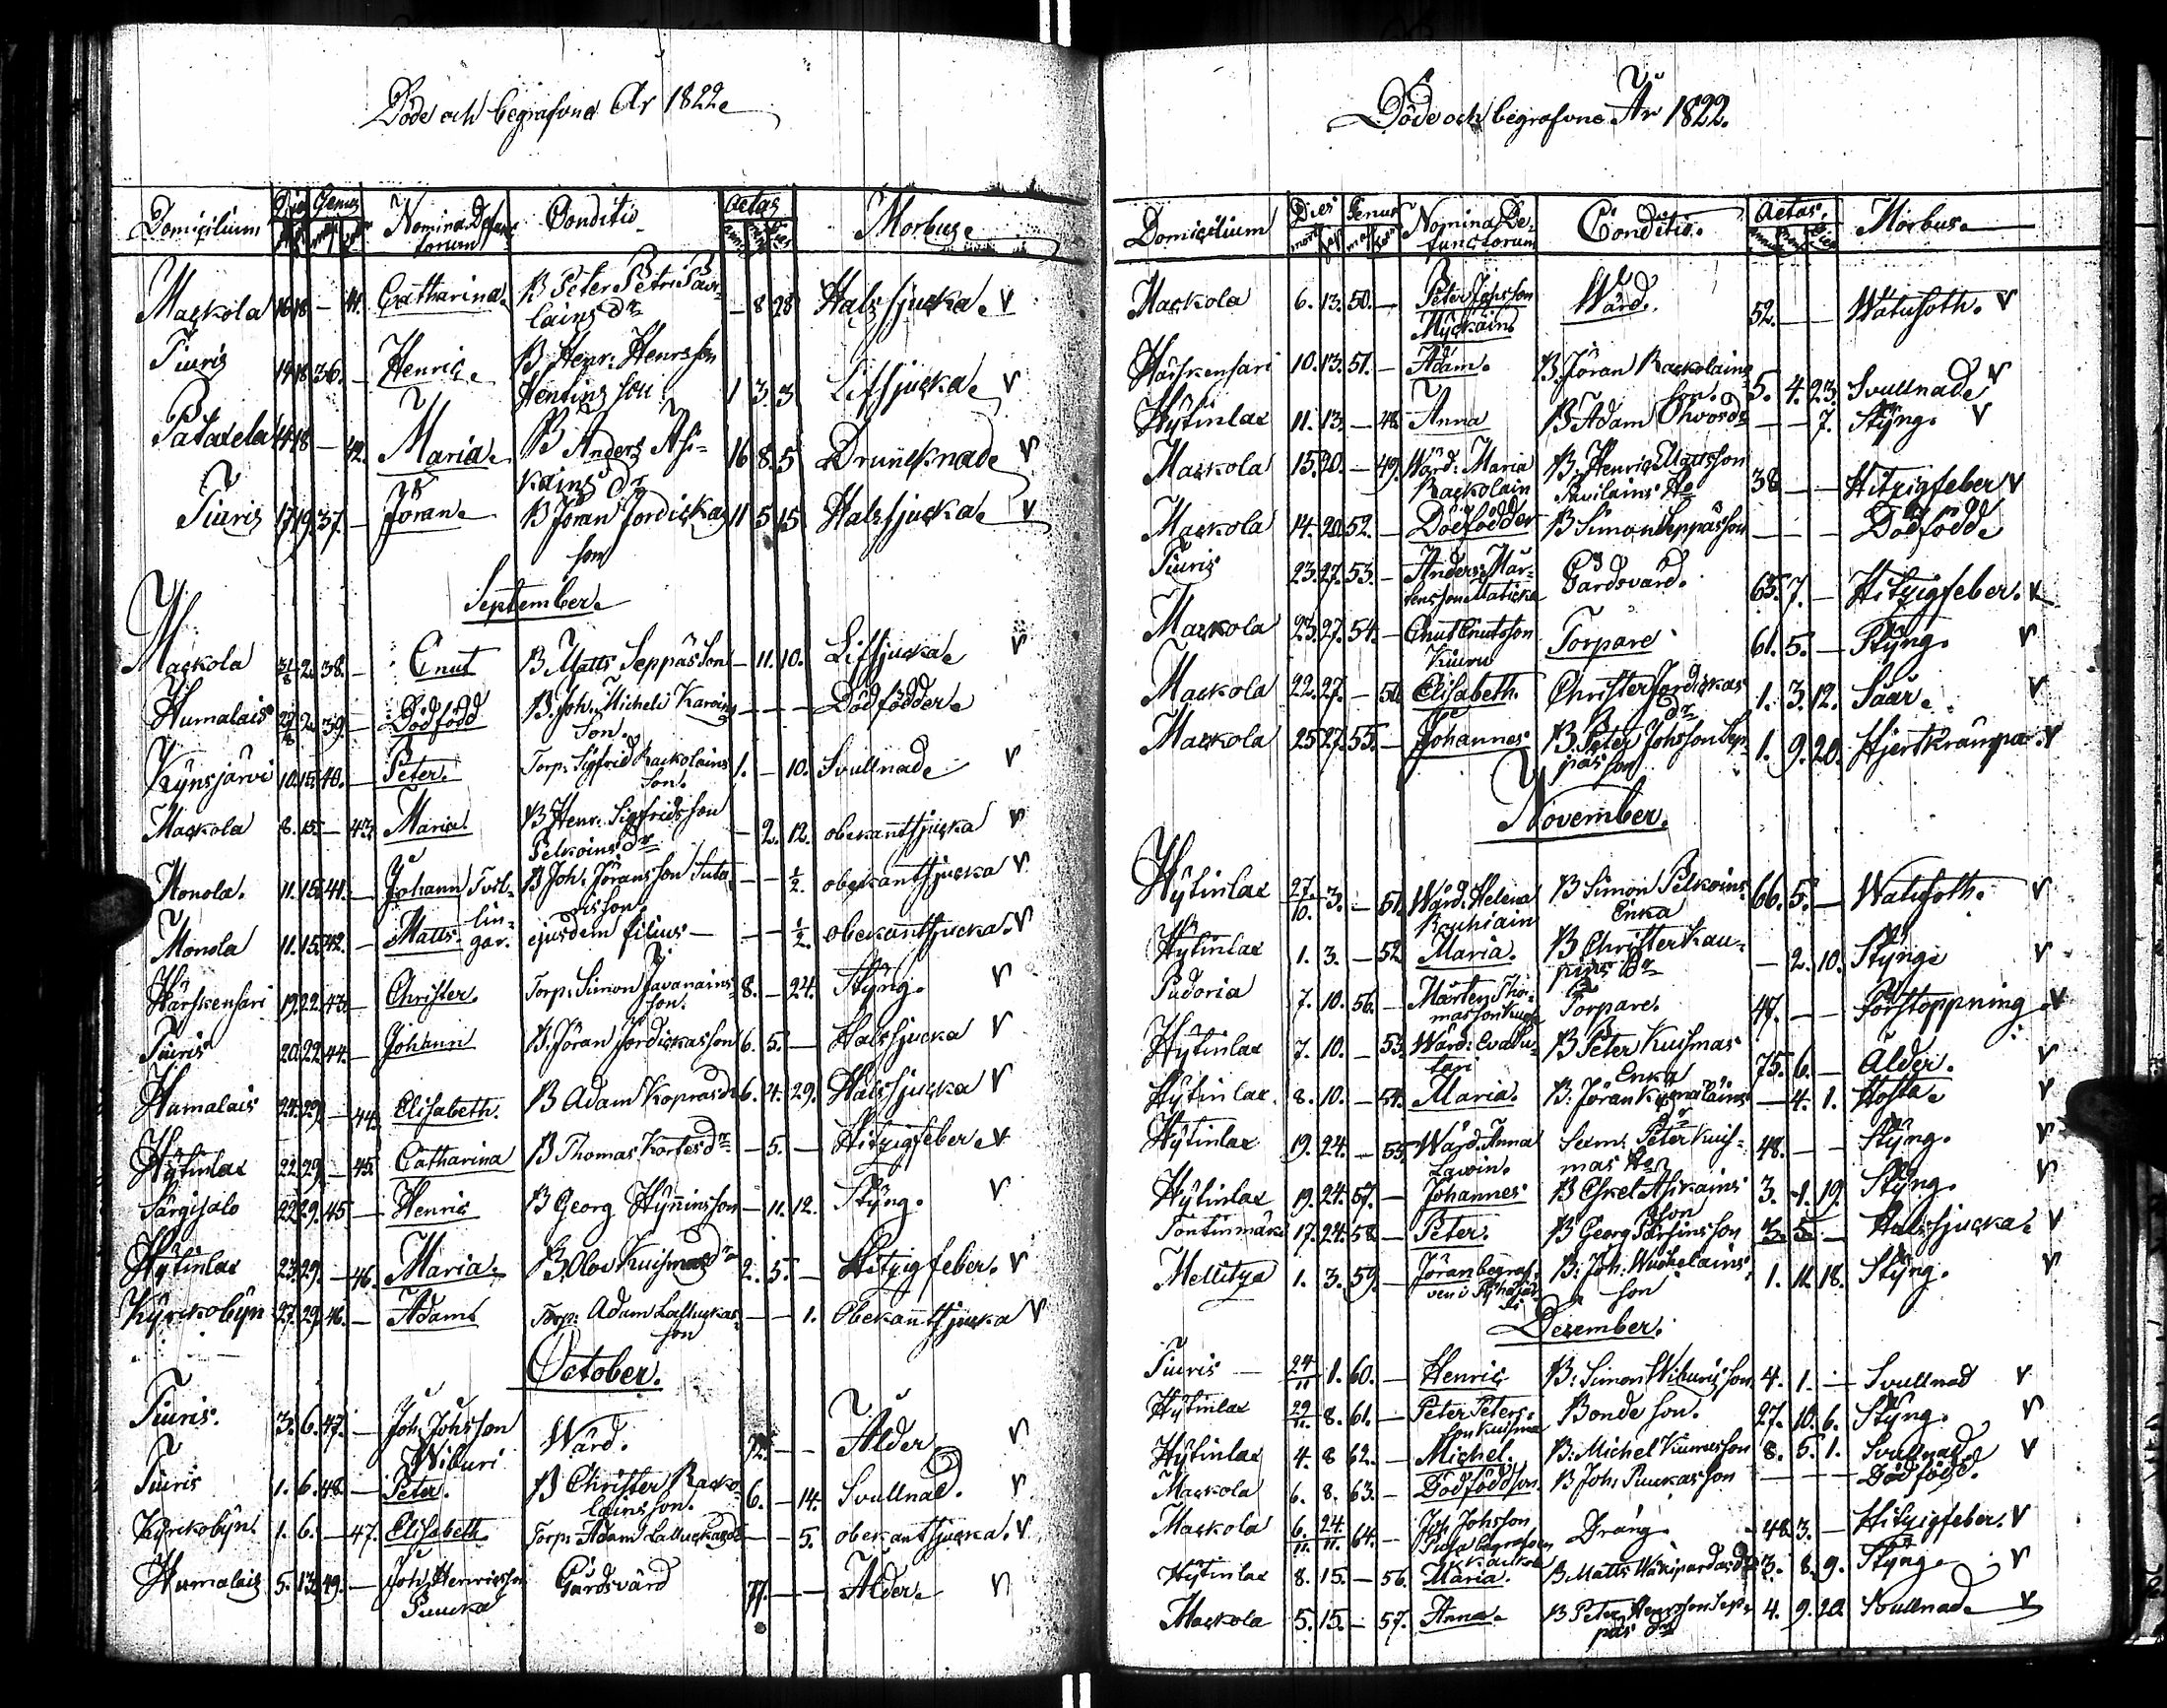 Döde och begrafvne År 1822
Domicilium Dies Genus Nomina Defunctorum Conditio Aetas Morbus
Mackola 16 18 — 41. Catharina B Peter Petri
lains dr — 8 28 Halssjucka
Tiuris 14 18 36. — Henric B. Henr: Henrsson
Hentins son 1 3. 3 Lifsjucka
14 18 — 42. Maria B Anders Asi-
kains dr 16 8. 5 Drunknade
Tiuris 17 19. 37. — Jöran B Jöran Jordickas 11 5 15 Halssjucka
son
September
Mackola 31/8 2. 38. — Cnut B. Matts Seppäs Son — 11. 10. Lifsjucka
Humalais 2. 39. — Dödfödd B. Joh. Micheli
Son. — — — Dödfödder
Kynsjärvi 10. 15. 40. — Peter. Torp. Sigfrid Rackolains
Son. 1. — 10. Svullnad
Mackola 8. 15. — 43. Maria B Henr. Sigfridsson
Pelkoins dr — 2. 12. obekant sjucka
Monola. 11. 15. 41. — Johann Tvil- B Joh. Jöransson Suta
ris son — — ½. obekant sjucka
Monola 11. 15. 42. — Matts lin-
gar. ejusdem filius — — — ½. obekant sjucka.
Härskensari 19. 22. 43. — Christer. Torp. Simon Javanains
son. 8. — 24. Styng.
Tiuris 20. 22. 44. — Johann B. Jöran Jordickas son 6. 5. — Halssjucka
Humalais 24. 29. — 44. Elisabeth. B Adam Kopras dr 6. 4. 29. Halssjucka
Hytinlax 22. 29. — 45. Catharina B Thomas Kortes dr — 5. — Hitzigfeber
Särgisalo 22. 29. 45 — Henric B Georg Hynnins son — 11. 12. Styng.
Hytinlax 23. 29. — 46. Maria. B. Olov Kuismas dr 2. 5. — Hitzigfeber.
Kyrkobyn 27. 29. 46. — Adam Torp: Adam Lalluckas
son — — 1. Obekant sjucka
October.
Tiuris. 3. 6. 47. — Joh. Johsson
Wiburi Wärd. 72. — — Ålder
Tiuris 1. 6. 48. — Peter. B Christer Racko-
lains son. 6. — 14. Svullnad.
Kyrkobyn 1. 6. — 47. Elisabeth Torp. Adam Lalluckas dr — — 5. obekant sjucka.
Humalais 5. 13. 49. — Joh. Henricsson
Puucka Gårdsvärd 77. — — Ålder
Döde och begrafvne År 1822.
Domicilium Dies Genus Nomina De-
functorum Conditio. Aetas. Morbus
Mackola 6. 13. 50. — Peter Johsson
Myckäin Wärd. 52. — — Watusoth.
Härskensari 10. 13. 51. — Adam. B. Jöran Rackolains
son. 5. 4. 23. Svullnad
Hytinlax 11. 13. — 48. Anna B Adam Ohvos dr — — 7. Styng.
Mackola 15. 20. — 49. Wärd: Maria
Rackolain B. Henric Mattsson
Pavilains Ho 38 — — Hitzigfeber
Mackola 14. 20. 52. — Dödfödder B Simon Seppäs son — — — Dödfödd
Tiuris 23. 27. 53. — Anders Mår-
tensson Maticka Gårdsvärd. 65. 7. — Hitzigfeber.
Mackola 23. 27. 54. — Cnut Cnutsson
Kiuru Torpare 61. 5. — Styng.
Mackola 22. 27. — 50. Elisabeth. Christer Jordickas
dr 1. 3. 12. Säär.
Mackola 25 27. 55. — Johannes B. Peter Johsson Sep-
päs son 1. 9. 20. Hjertkrampa.
November.
Hytinlax 27/10. 3. — 51. Wärd. Helena
Rouhiain B Simon Pelkoins
Enka 66. 5. — Watusoth.
Hytinlax 1. 3. — 52. Maria. B Christer Kau-
pins dr — 2. 10. Styng
Pudoria 7. 10. 56. — Mårten Tho-
masson Torpare. 47. — — Förstoppning
Hytinlax 7. 10. — 53. Wärd: Eva Su-
tari B Peter Kuismas
Enka 75. 6. — Ålder.
Hytinlax 8. 10. — 54. Maria. B. Jöran
dr — 4. 1. Hosta
Hytinlax 19. 24. — 55. Wärd. Anna
Lavoin. Peter Kuis-
mas Ho 48. — — Styng.
Hytinlax 19. 24. 57. — Johannes B Eskel Asikains
son 3. 1. 19. Styng.
Pontinmäki 17. 24. 58 — Peter. B Georg Pärsins son 3. 5 — Halssjucka
Mellitza 1. 3. 59. — Jöran begraf-
ven i B: Joh. Wuohelains
son 1. 11. 18. Styng.
Dezember.
Tiuris — 24/11 1. 60. — Henric B: Simon Wiburis son 4. 1. — Svullnad
Hytinlax 29/11. 8. 61. — Peter Peters-
son Kuisma Bonde son. 27. 10. 6. Styng.
Hytinlax 4. 8 62. — Michel. B. Michel Kurus son 8. 5. 1. Svullnad
Mackola 6. 8. 63. — Dödfödd son B Joh. Puuckas son — — — Dödfödd.
Mackola 6/11. 24/11. 64. — Joh. Johsson
begrafven Dräng 48. 3. — Hitzigfeber.
Hytinlax 8. 15. — 56. Maria. B Matts dr 3. 8. 9. Styng
Mackola 5. 15. — 57. Anna B Peter Henrsson Sep-
päs dr 4. 9. 20 Svullnad